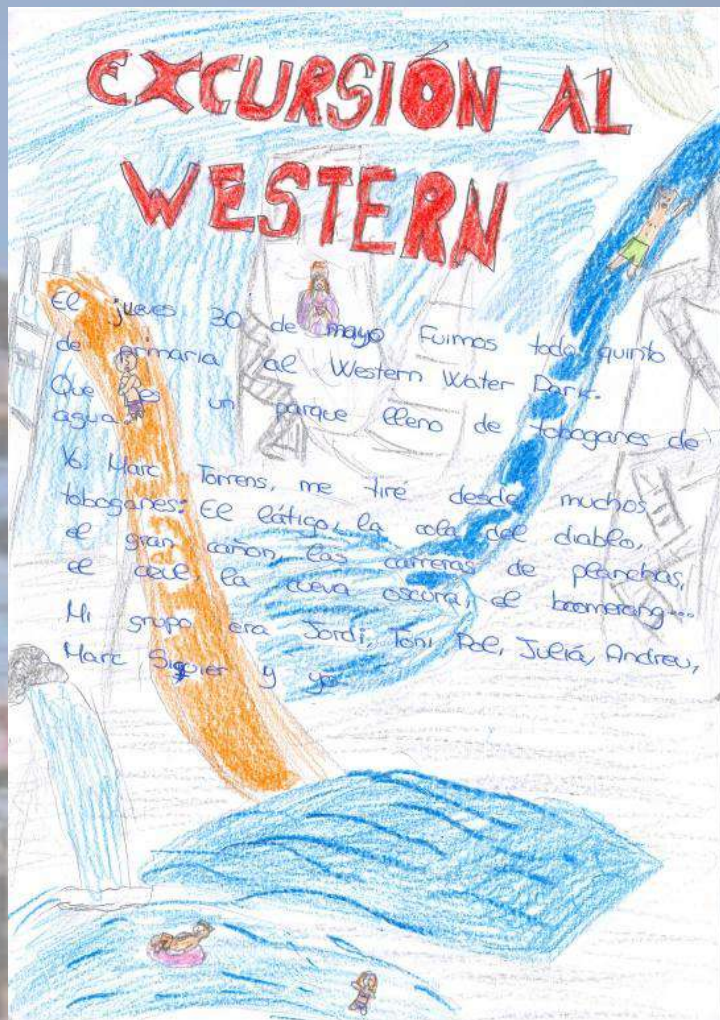 EXCURSIÓN AL
WESTERN
El jueves 30 de mayo Fuimos todo quinto
de primaria al Western Water Park.
Que es un parque lleno de toboganes de
agua.
Yo, Marc Torrens, me tiré desde muchos
toboganes: El látigo, la cola del diablo,
el gran cañon, las carreras de planchas,
el la cueva oscura, el boomerang...
Mi grupo era Jordi, Toni, Pol, Juliá, Andreu,
Marc Siquier y yo